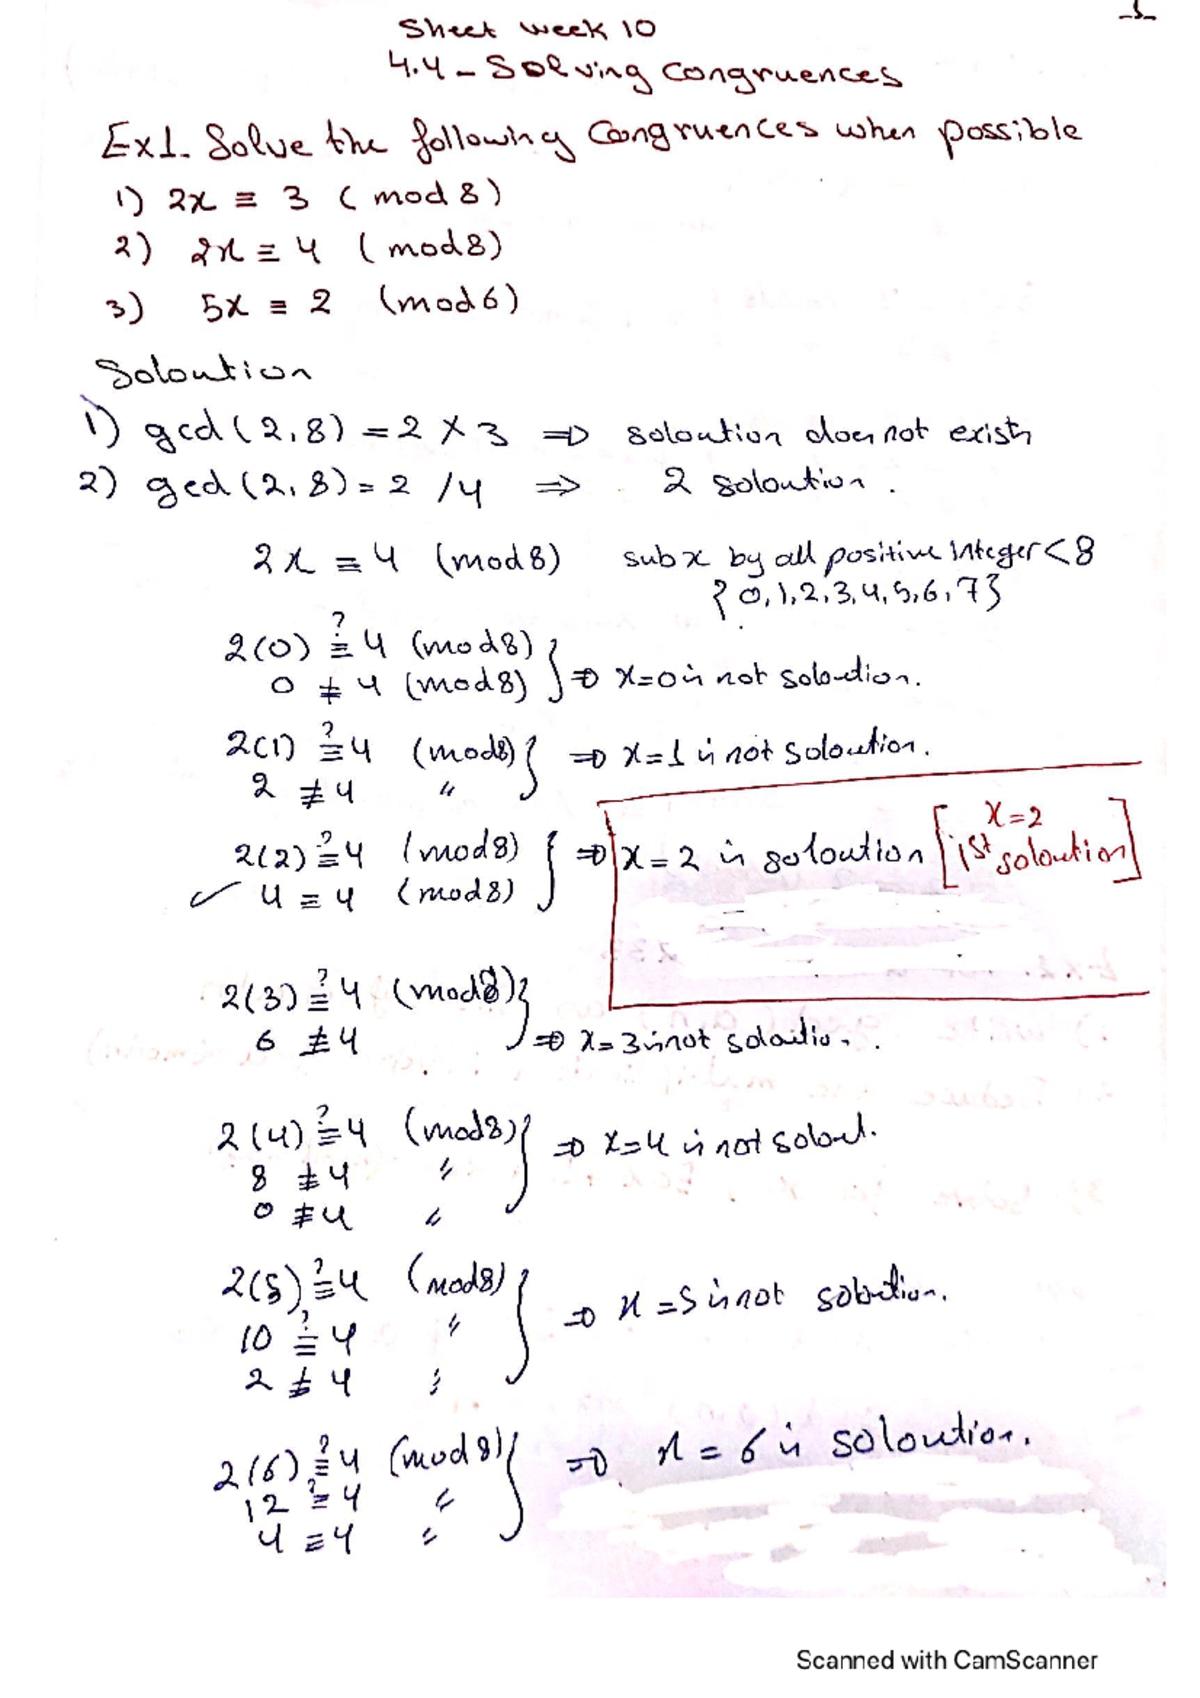 -1-
Sheet week 10
4.4 - Solving Congruences
Ex1. Solve the following Congruences when possible
1) 2x ≡ 3 (mod 8)
2) 2x ≡ 4 (mod 8)
3) 5x ≡ 2 (mod 6)
Soloution
1) gcd(2,8) = 2 ∤ 3 ⇒ soloution does not exists
2) gcd(2,8) = 2 / 4 ⇒ 2 soloution.
2x ≡ 4 (mod 8) sub x by all positive Integer < 8
{0,1,2,3,4,5,6,7}
2(0) ≟ 4 (mod 8)
0 ≢ 4 (mod 8) } ⇒ x=0 is not soloution.
2(1) ≟ 4 (mod 8) } ⇒ x=1 is not soloution.
2 ≢ 4 "
2(2) ≟ 4 (mod 8) } ⇒ x=2 is soloution [x=2 1st soloution]
✓ 4 ≡ 4 (mod 8)
2(3) ≟ 4 (mod 8)
6 ≢ 4 } ⇒ x=3 is not soloutio.
2(4) ≟ 4 (mod 8) } ⇒ x=4 is not solout.
8 ≢ 4 "
0 ≢ 4 "
2(5) ≟ 4 (mod 8) } ⇒ x=5 is not soloution.
10 ≟ 4 "
2 ≢ 4 "
2(6) ≟ 4 (mod 8) } ⇒ x=6 is soloution.
12 ≟ 4 "
4 ≡ 4 "
Scanned with CamScanner